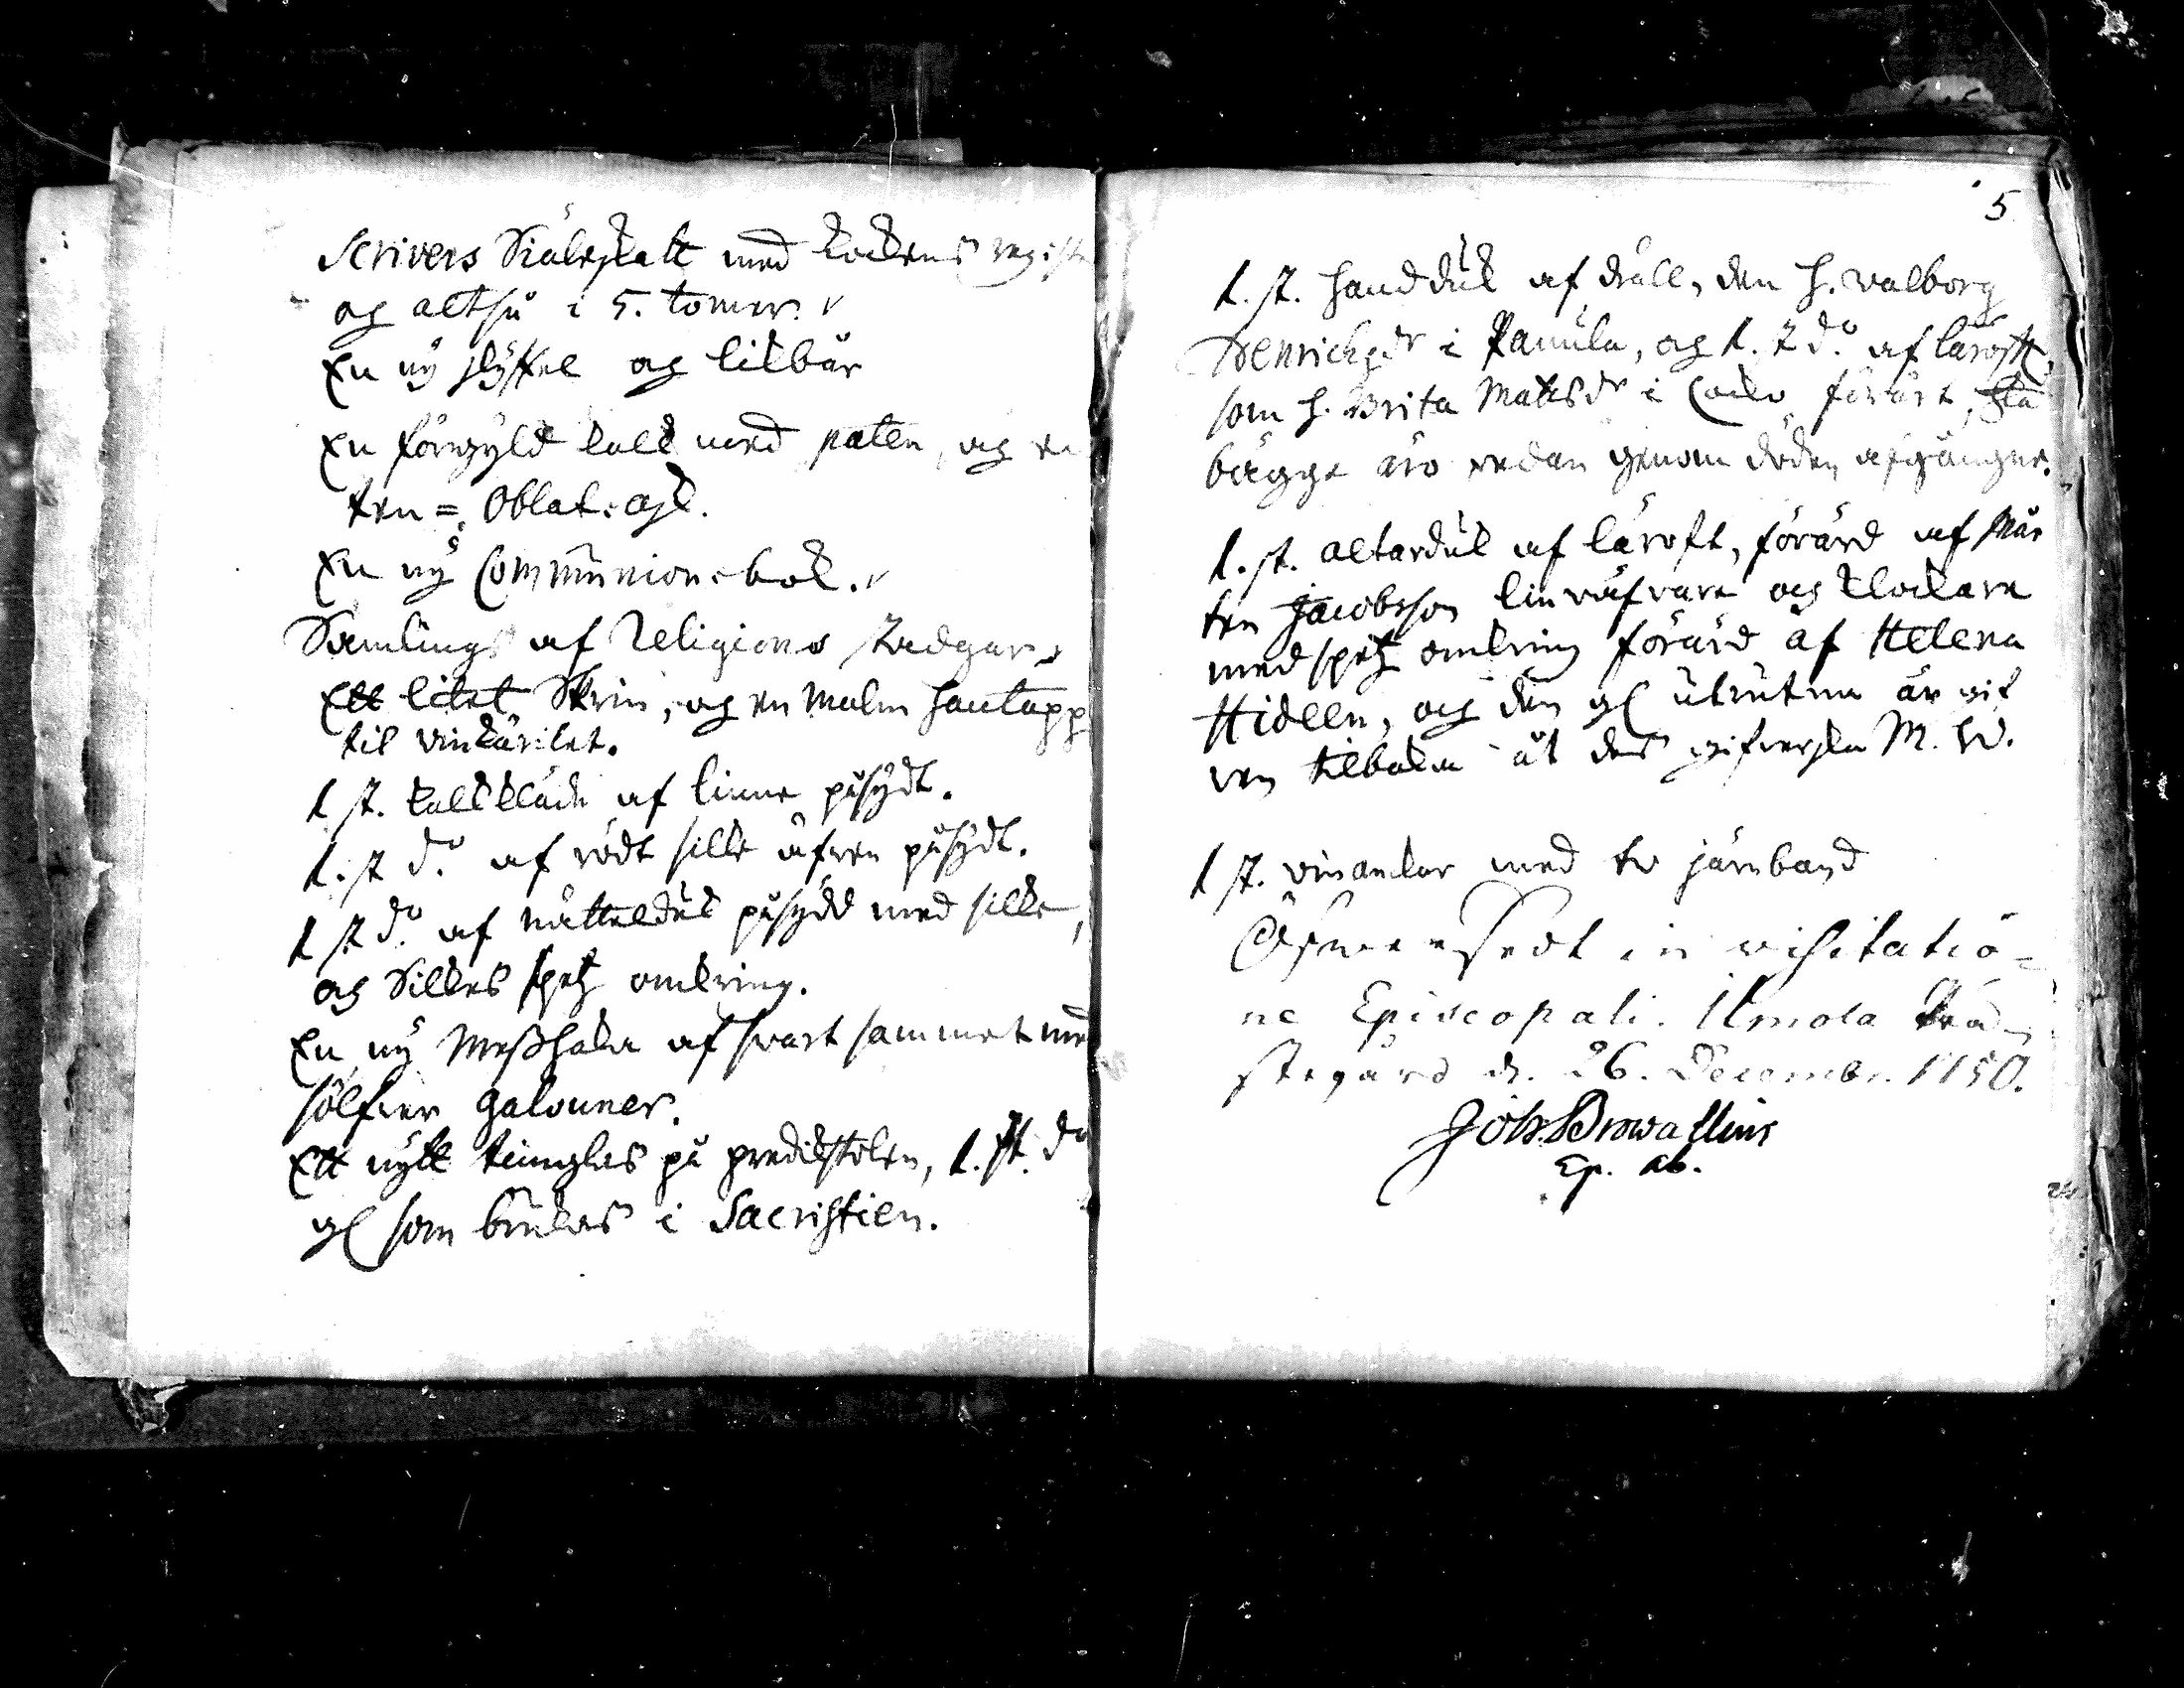 Scrivers Siäleskatt med kockens regist
og altså i 5. tomer.
En ny skyffel og likbår
En förgyld kalk med paten, og en
ten = Oblat-ask.
En ny Communions-bok.
Samlings af Religions stadgar
Ett litet Skrin, og en malm hantapp
til vinkärilet.
1 st. kalkkläde af linne påsydt.
1. st do. af rödt silke äfven påsydt.
1 st do. af nättelduk påsydd med silke,
og Silkes spetz omkring.
En ny Messhaka af svart sammet med
sölfver galouner.
Ett nytt timglas på predikstolen, 1. st. do
gl som brukas i Sacristien.
5
1. st. handduk af dräll, den h. Valborg
Henrichsdr i Panula, og 1. st do. af läroft,
som h. Brita Matsdr i förärt,
bägge äro redan genom döden afgångne.
1. st. altarduk af läroft, förärd af Mår
ten Jacobsson linväfvare og klockare
med spetz omkring förärd af Helena
Hideen, og den gl utnutna är gif
ven tilbaka åt des gifverska M. W.
1 st. vinankar med tv järnband
Öfversedt in visitatio=
ne Episcopali. Ilmola Präst
stegård d. 26. Decembr. 1750.
Joh. Browallius
Ep. Ab.